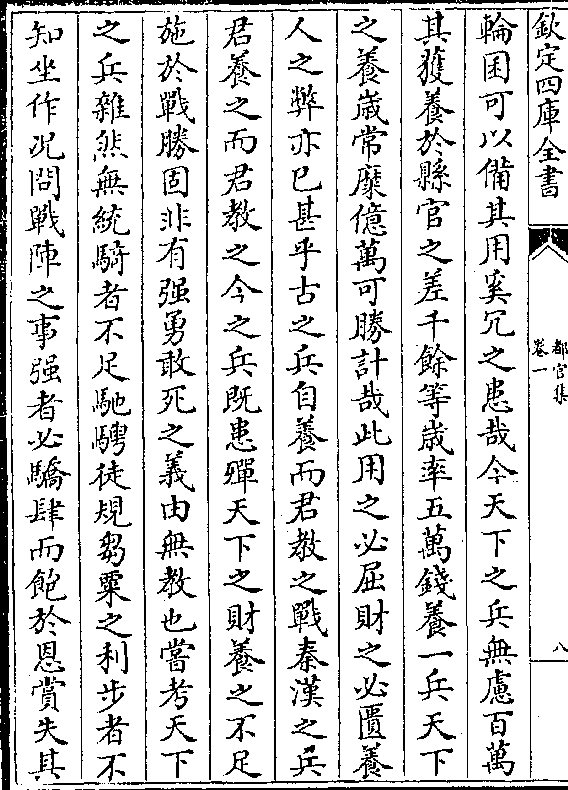 欽定四庫全書
都官集
卷一
八
輪囷可以備其用奚冗之患哉今天下之兵無慮百萬
其獲養於縣官之差千餘等歲率五萬錢養一兵天下
之養歲常糜億萬可勝計哉此用之必屈財之必匱養
人之弊亦已甚乎古之兵自養而君教之戰秦漢之兵
君養之而君教之今之兵既患殫天下之財養之不足
施於戰勝固非有强勇敢死之義由無教也嘗考天下
之兵雜然無統騎者不足馳騁徒規芻粟之利步者不
知坐作况問戰陣之事强者必驕肆而飽於恩賞失其